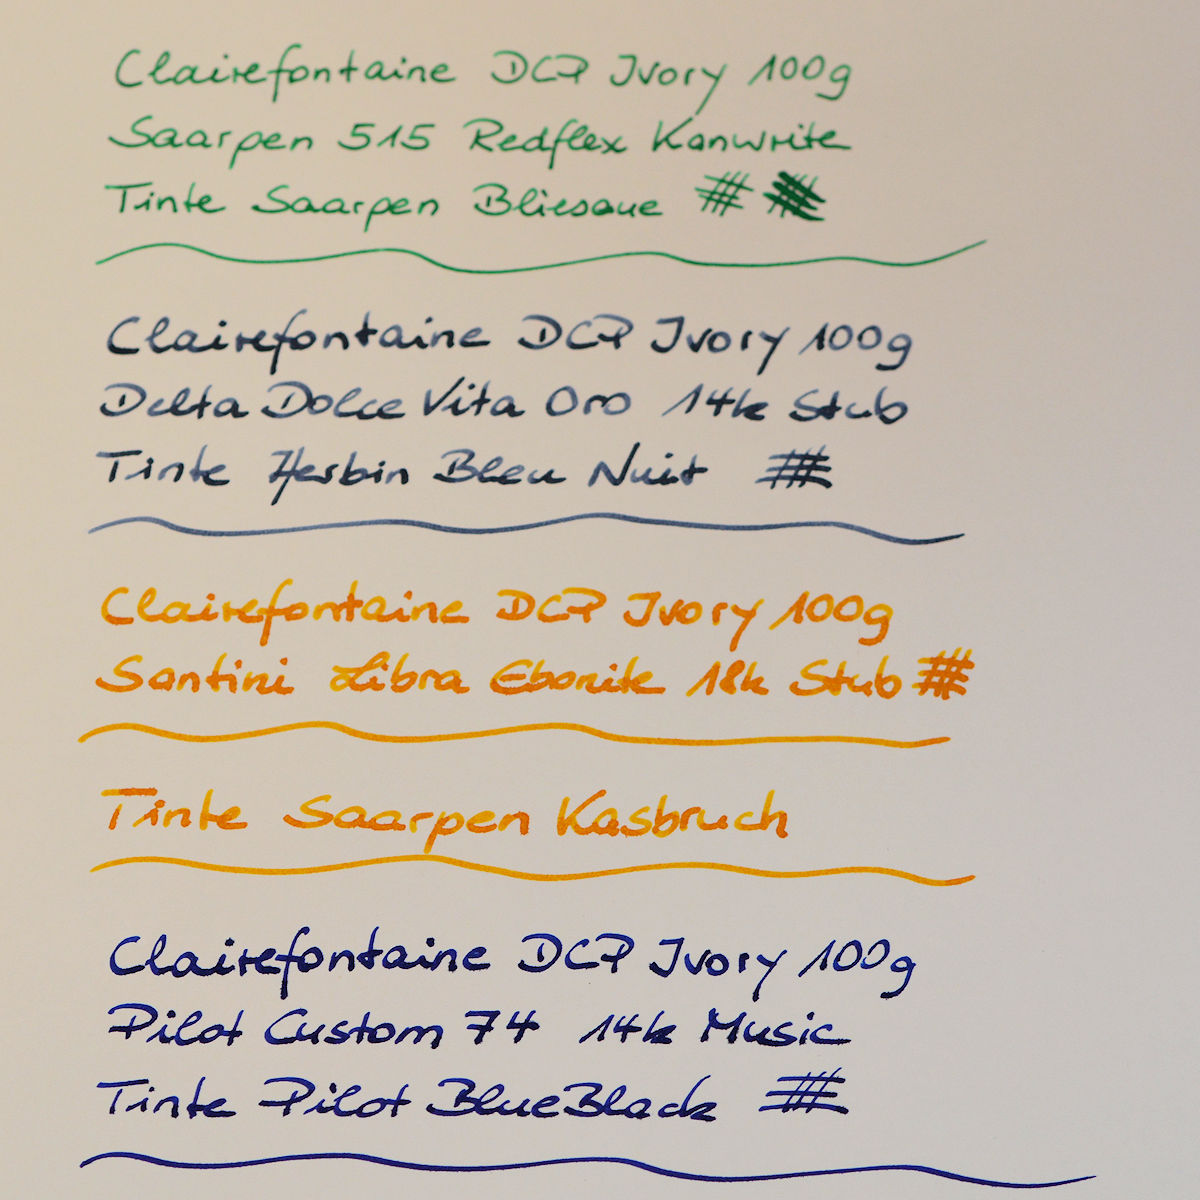 Clairefontaine DCP Ivory 100g
Saarpen 515 Redflex Kanwrite
Tinte Saarpen Bliesaue
Clairefontaine DCP Ivory 100g
Delta Dolce Vita Oro 14k Stub
Tinte Herbin Bleu Nuit
Clairefontaine DCP Ivory 100g
Santini Libra Ebonite 18k Stub
Tinte Saarpen Kasbruch
Clairefontaine DCP Ivory 100g
Pilot Custom 74 14k Music
Tinte Pilot BlueBlack